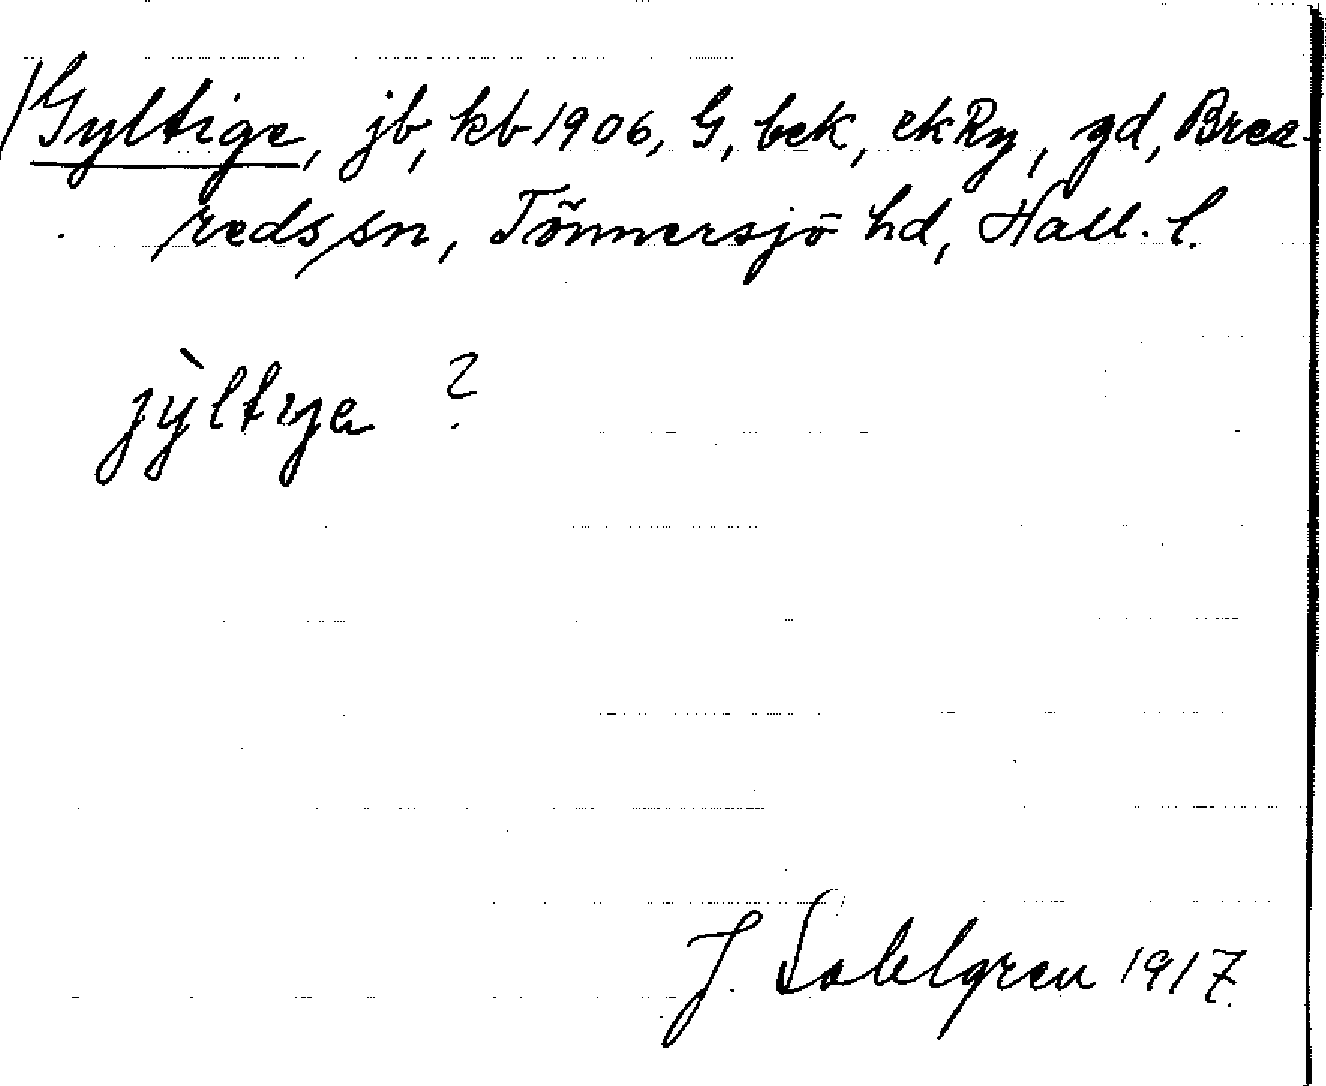 Gyltige, jb, kb 1906, G, bek, ekRy, gd, Brea-
reds sn, Tönnersjö hd, Hall. l.
jỳltıɟa ?
J. Sahlgren 1917